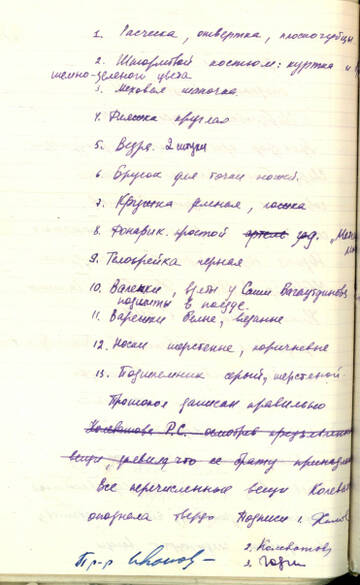 1. Расческа, отвертка, плоскогубцы
2. Штормовой костюм: куртка и
темно-зеленого цвета
3. Меховая шапочка
4. Фляжка круглая
5. Ведра 2 штуки
6. Брусок для точки ножей.
7. Кружка эмален, ложка
8. Фонарик простой зав.
9. Телогрейка черная
10. Валенки, взяты у Саши
подшиты в поезде.
11. Варежки белые, вязанные
12. Носки шерстяные, коричневые
13. Подшлемник серый, шерстяной
Протокол записан правильно
Колеватова Р.С. осмотрев предъявленные
вещи, заявила, что ее брату
Все перечисленные вещи
опознала твердо Подписи 1.
2. Колеватов
3. Годин
Пр-р Иванов